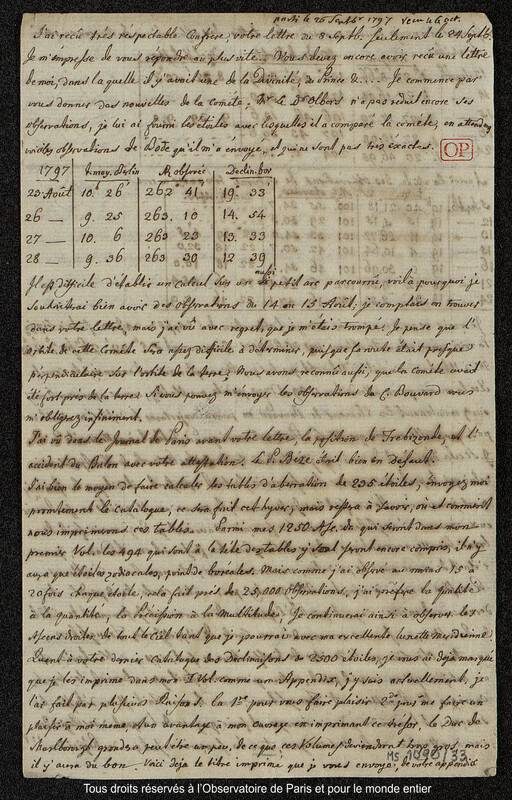 parti le 26 Septbr 1797 reçu le 6 oct.
J'ai reçu très respectable Confrere, votre lettre du 8 Septb. seulement le 24 Septb.
Je m'empresse de vous repondre au plus vite. Vous devez encore avoir reçu une lettre
de moi, dans laquelle il y avait une de la Divinité, du Prince &.... Je commence par
vous donner des nouvelles de la Comète; Mr le Dr Olbers n'a pas reduit encore ses
observations, je lui ai fourni les étoiles avec lesquelles il a comparé la comète, en attendant
voici les observations de Bode qu'il m'a envoyé, et qui ne sont pas tres exactes.
OP
1797 T. moy. Berlin AR observée Declin. bor
23 Août 10. 26' 262 41' 19. 33'
26 — 9. 25 263. 10 14. 54
27 — 10. 6 263 23 13. 33
28 — 9. 36 263 30 12 39
Il est difficile d'établir un calcul sur un aussi petit arc parcourru, voilà pourquoi je
souhaitrai bien avoir des observations du 14 ou 15 Août; je comptais en trouver
dans votre lettre, mais j'ai vû avec regret, que je m'étais trompé. Je pense que l'
orbite de cette Comète sera assez difficile à determiner, puisque sa route était presque
perpendiculaire sur l'orbite de la terre; Nous avons reconnû aussi, que la Comète avait
été fort près de la terre. Si vous pouvez m'envoyer les observations du C. Bouvard vous
m'obligerez infiniment.
J'ai vû dans le Journal de Paris avant votre lettre, la position de Trebizonde, et l'
accident du Balon avec votre attestation. Le P. Beze était bien en defaut.
J'ai bien le moyen de faire calculer les tables d'aberration de 235 étoiles, envoyez moi
promtement le Catalogue, ce sera fait cet hyver, mais restera à savoir, où et comment
nous imprimerons ces tables. Parmi mes 1250 Asc. dr qui seront dans mon
premier Vol. les 494 qui sont à la tête des tables y sont seront encore compris, il n'y
aura que étoiles zodiacales, point de boréales. Mais comme j'ai observé au moins 15 à
20 fois chaque étoile, cela fait près de 25,000 observations, j'ai préferé la qualité
à la quantité, la Précission à la Multitude. Je continuerai ainsi à observer les
Ascens droites de tout le Ciel tant que je pourrai avec ma excellente lunette meridienne.
Quant à votre dernier Catalogue des Declinaisons de 2500 étoiles, je vous ai deja marqué
que je les imprime dans mon I Vol. comme un Appendix, j'y suis actuellement, je
l'ai fait par plusieurs Raisons, la 1re pour vous faire plaisir 2do pour me faire un
plaisir à moi meme et un avantage à mon ouvrage en imprimant ce tresor. le Duc de
Marlborough grondera peut être un peu, de ce que ces Volumes deviendront trop gros, mais
il y aura du bon. Voici deja le titre imprimé que je vous envoye, de votre appendix
MS 1090/33
Tous droits réservés à l'Observatoire de Paris et pour le monde entier